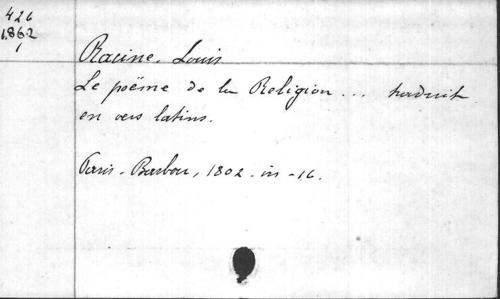 426
1.862
1
Racine. Louis
Le poëme de la Religion ... traduit
en vers latins.
Paris - Barbou, 1802. in-16.